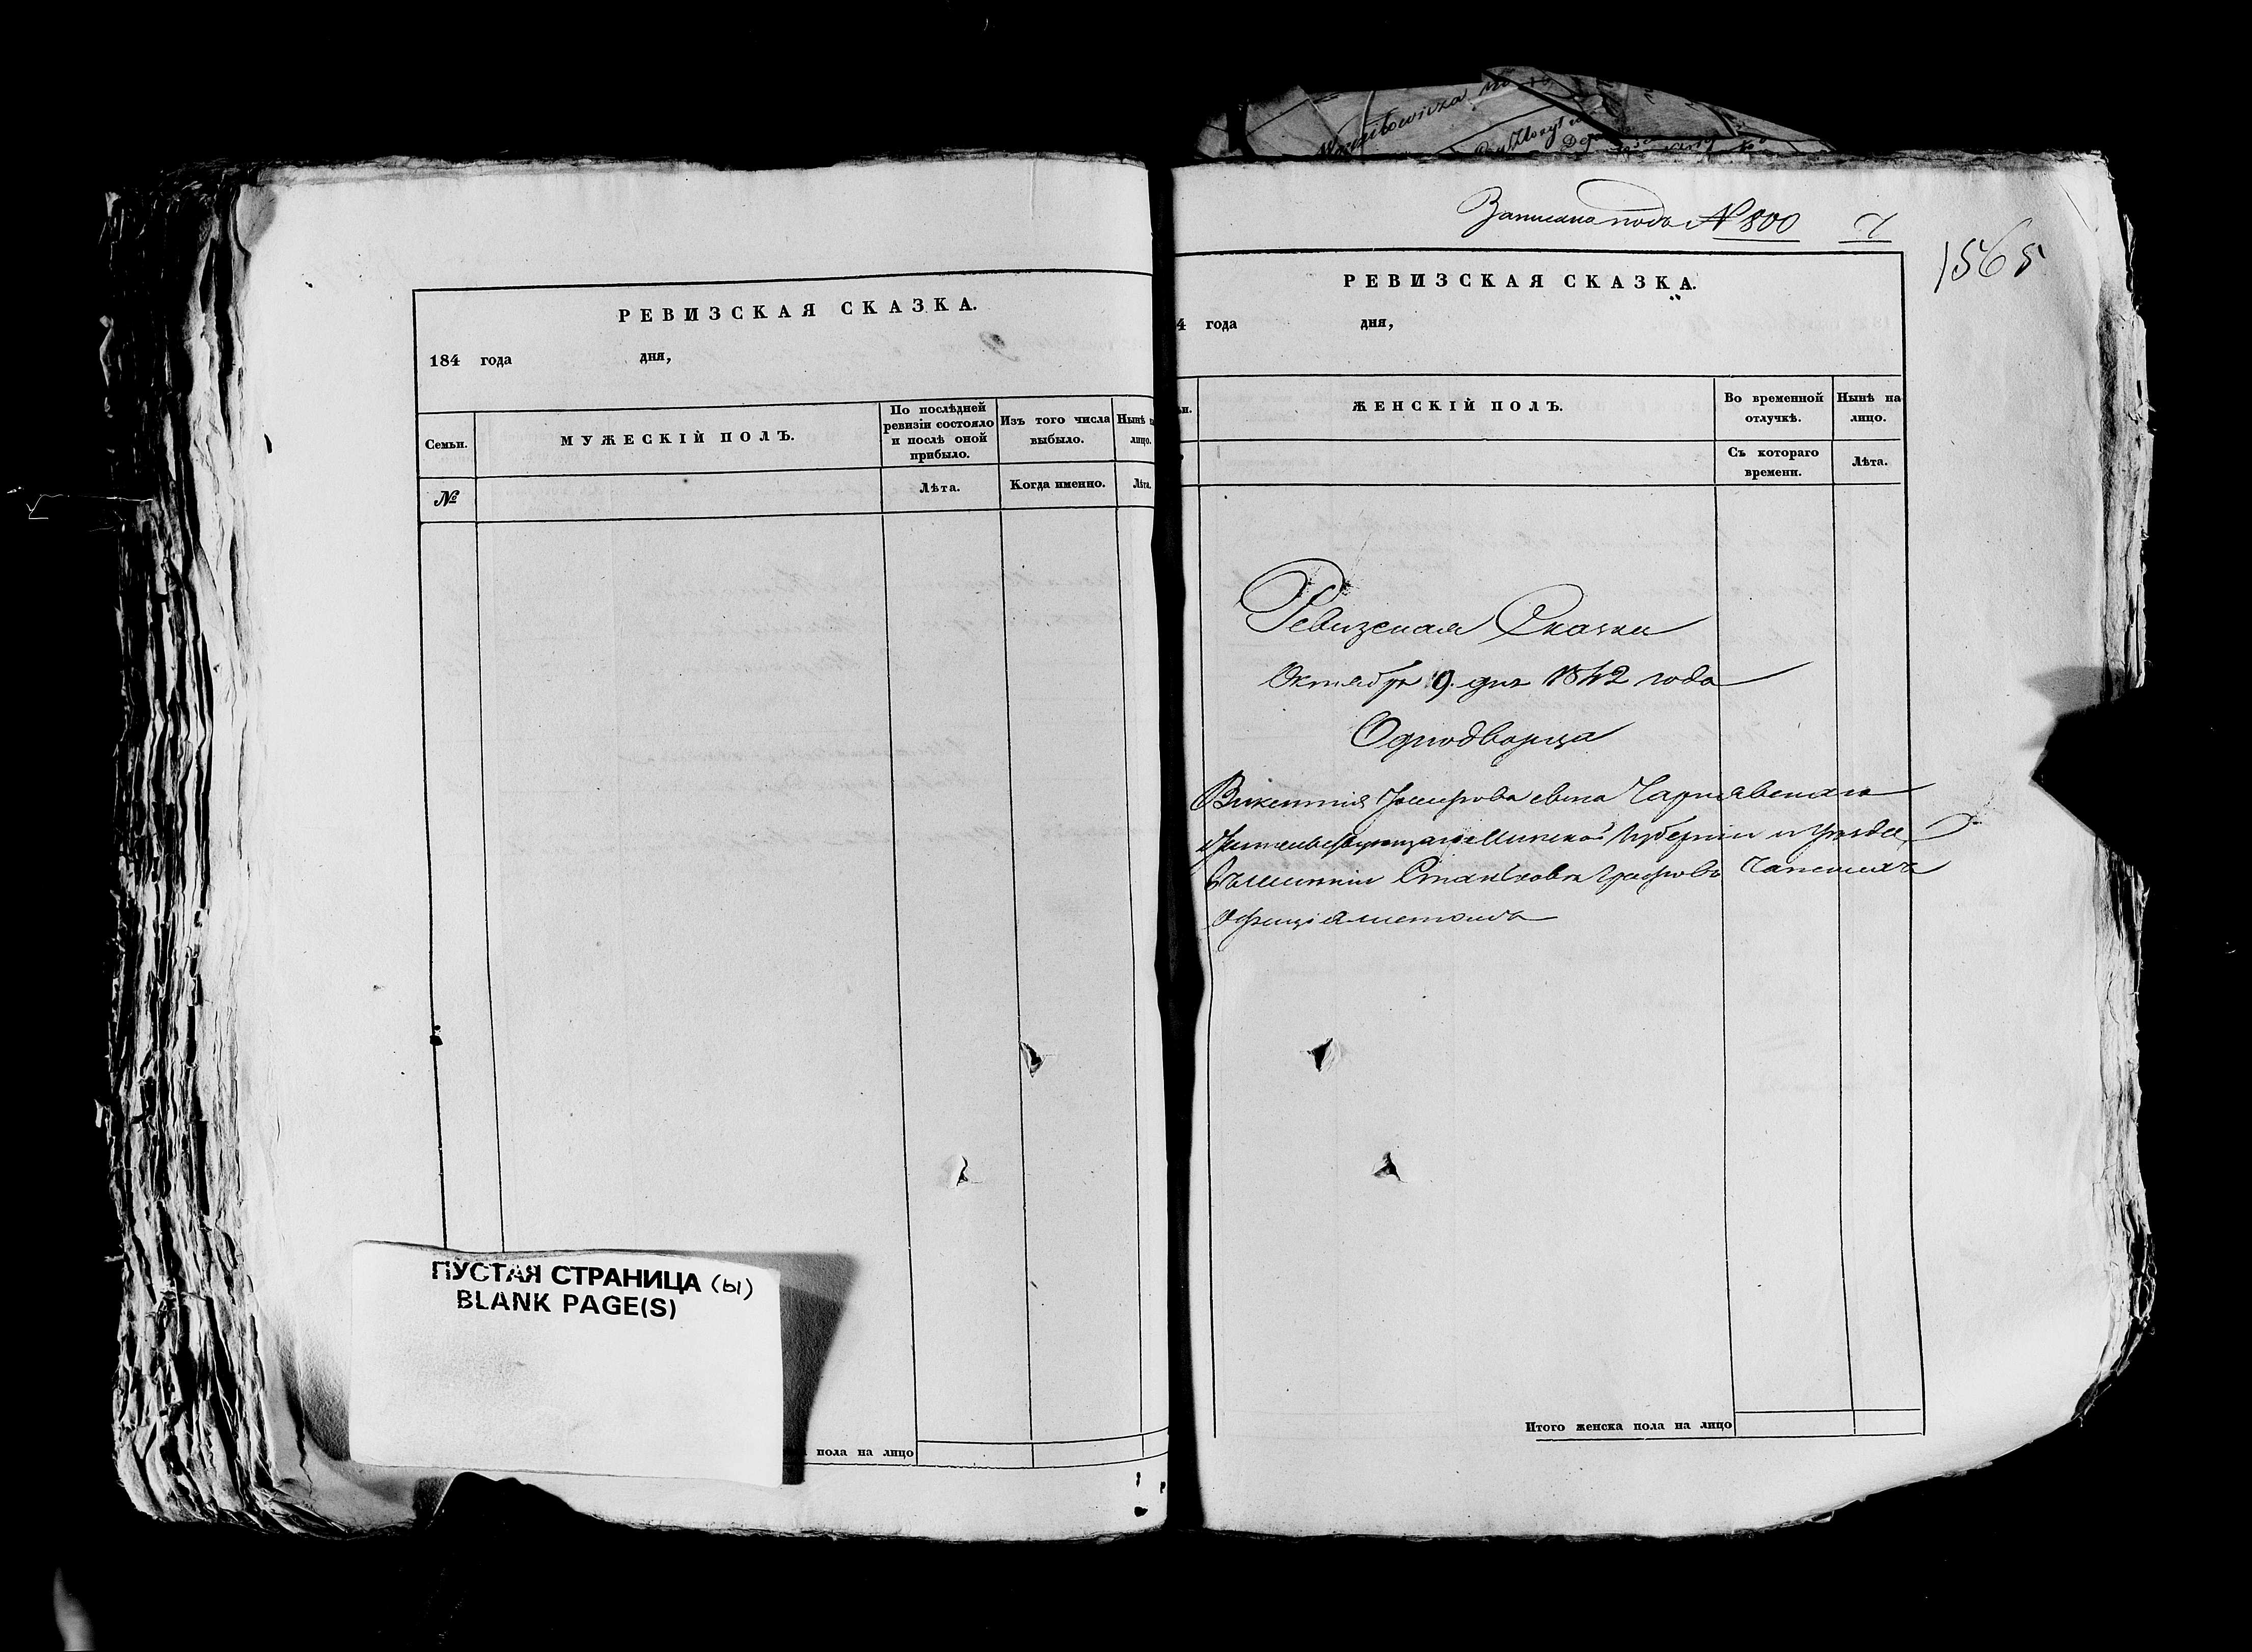 РЕВИЗСКАЯ СКАЗКА.
184 года дня,
Семьи.
МУЖЕСКІЙ ПОЛЪ.
По послѣдней ревизіи состояло и послѣ оной прибыло.
Изъ того числа выбыло.
Нынѣ лицо.
№
Лѣта.
Когда именно.
Лѣта.
ПУСТАЯ СТРАНИЦА (ы)
BLANK PAGE(S)
пола на лицо
Записана подъ № 800
1565
РЕВИЗСКАЯ СКАЗКА.
4 года дня,
ЖЕНСКІЙ ПОЛЪ.
Во временной отлучкѣ.
Нынѣ на лицо.
Съ котораго времени.
Лѣта.
Ревизская Сказка
Октября 9 дня 1842 года
Однодворца
Викентія сына Чарнявскаго
жительствующаго Минской Губерніи и Уѣзда
Станьковѣ Графовъ Чапскихъ
Итого женска пола на лицо